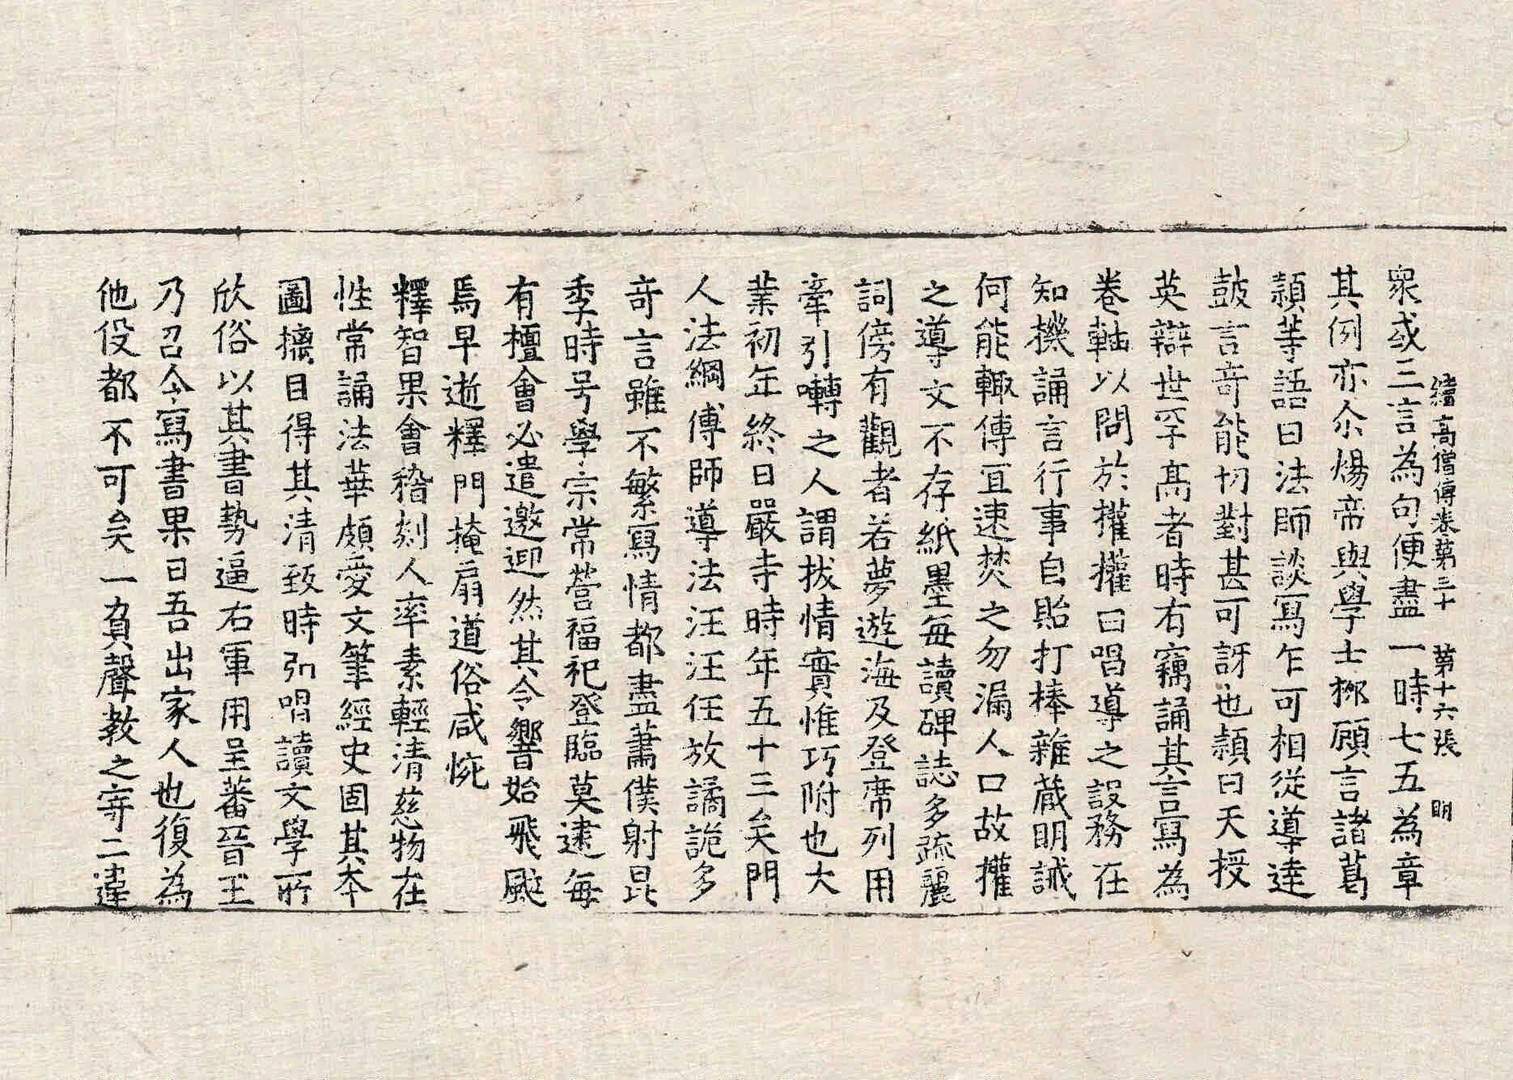 續高僧傳卷第三十 第十六張 明
衆或三言為句便盡一時七五為章
其例亦尒煬帝與學士栁顧言諸葛
頴等語曰法師談寫乍可相從導達
鼓言竒能切對甚可訝也頴曰天授
英辯世罕髙者時有竊誦其言寫為
卷軸以問於權權曰唱導之設務在
知機誦言行事自貽打棒雜藏明誡
何能輙傳宜速焚之勿漏人口故權
之導文不存紙墨每讀碑誌多疏麗
詞傍有觀者若夢遊海及登席列用
牽引囀之人謂拔情實惟巧附也大
業初年終日嚴寺時年五十三矣門
人法綱傳師導法汪汪任放譎詭多
竒言雖不繁寫情都盡蕭僕射昆
季時号學宗常營福祀登臨莫逮每
有檀會必遣邀迎然其令響始飛颷
焉早逝釋門掩扇道俗咸惋
釋智果會稽剡人率素輕清慈物在
性常誦法華頗愛文筆經史固其本
圖摛目得其清致時弘唱讀文學所
欣俗以其書勢逼右軍用呈蕃晉王
乃召令寫書果曰吾出家人也復為
他役都不可矣一負聲教之寄二違